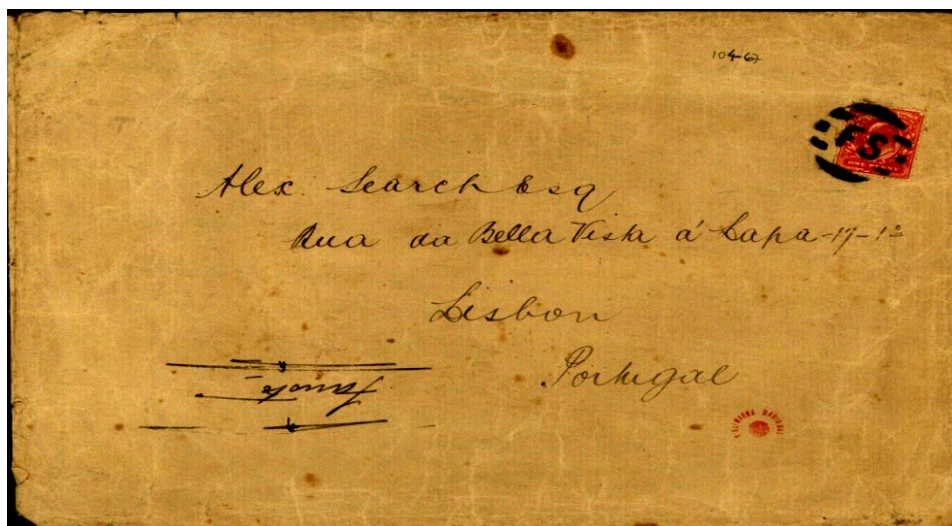 104-67
FS
ONE PENNY
Alex. Search Esq
Rua da Bella Vista á Lapa-17-1º
Lisbon
Portugal